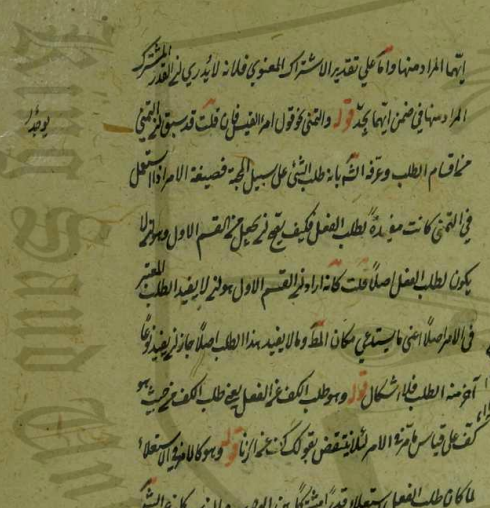 ايهما المراد منها واما علي تقدير الاشتراك المعنوي فلانه لا يدري ان القدر المشترك
المراد منها في ضمن ايهما يوجد قوله والتمني نحو قول امرء القيس فان قلت قد سبق ان التمني
من اقسام الطلب وعرفه الش بانه طلب الشئ على سبيل المحبة فصيغة الامر اذا استعمل
في التمني كانت مفيدة لطلب الفعل فكيف يصح ان يجعل من القسم الاول وهو ان لا
يكون لطلب الفعل اصلا قلت كانه اراد ان القسم الاول هو ان لا يفيد الطلب المعتبر
في الامر اصلا اعني ما يستدعي مكان المط وما لا يفيد هذا الطلب اصلا جاز ان يفيد نوعا
آخر من الطلب فلا اشكال قوله وهو طلب الكف عن الفعل يعني طلب الكف من حيث هو
كف على قياس ما مر في الامر لئلا ينتقض بقولك كف عن الزنا قوله وهو كالامر في الاستعلاء
لما كان طلب الفعل استعلاء قدرا مشتركا بين